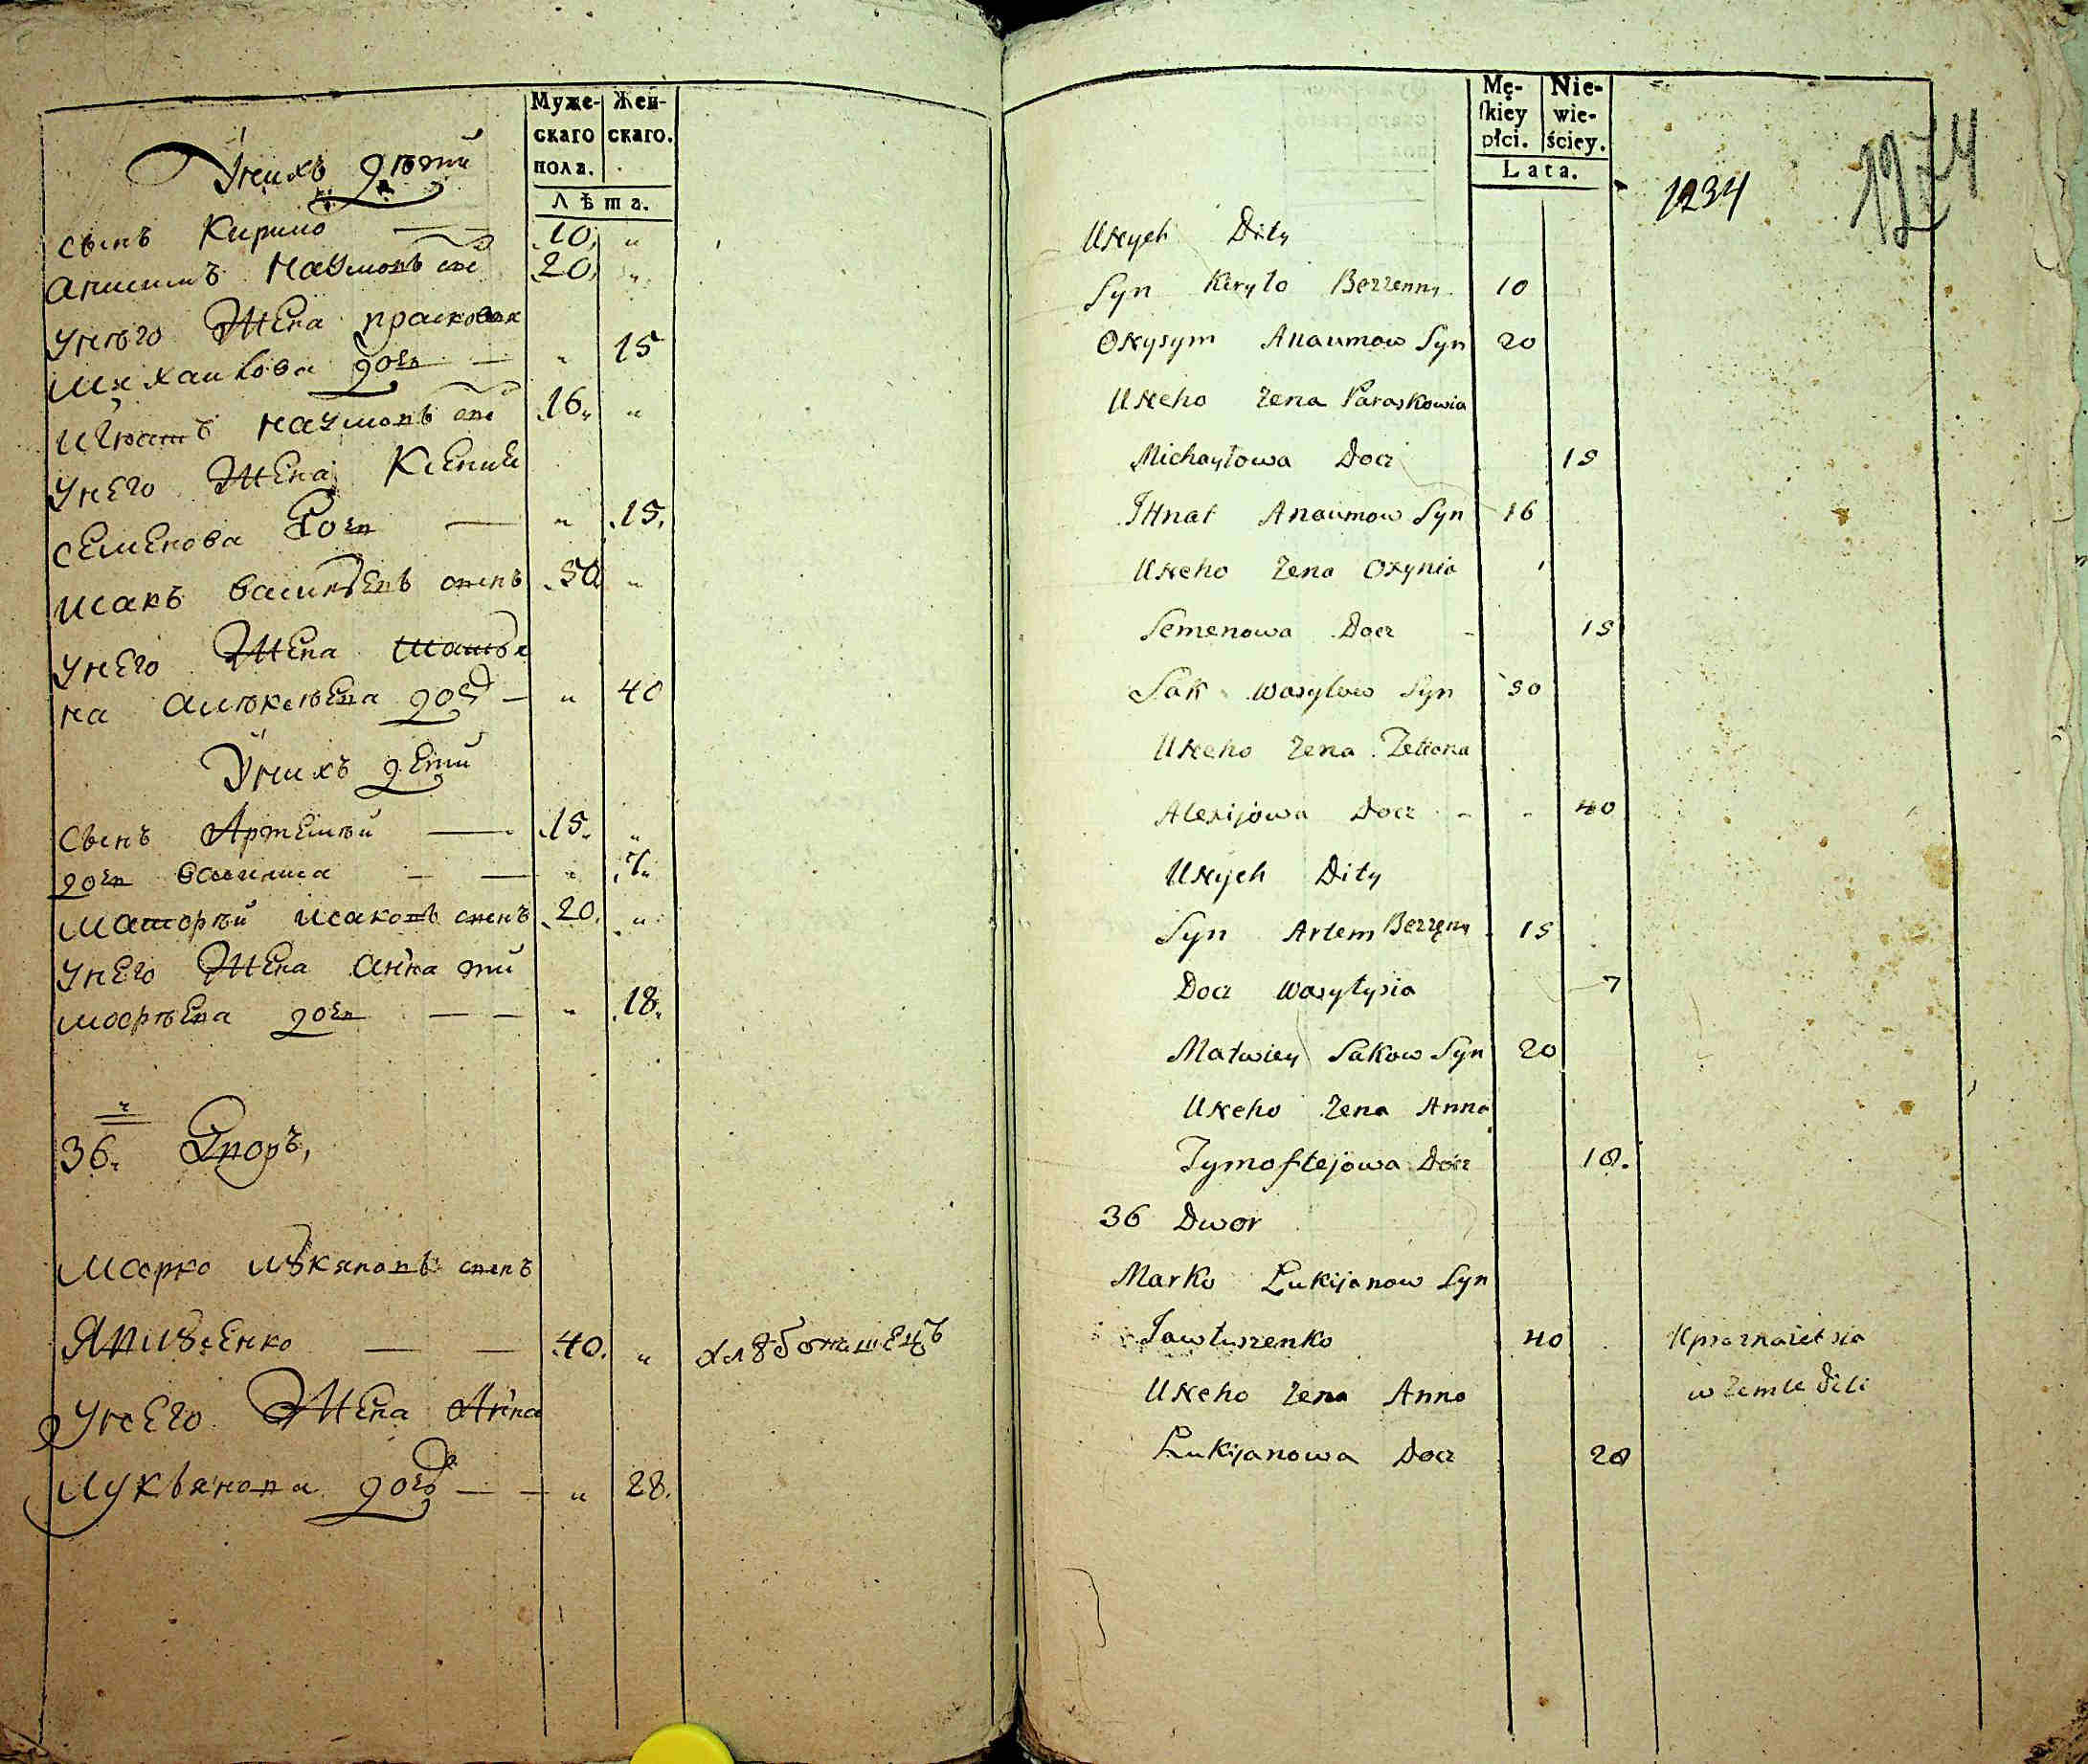 Муже-
скаго
пола.
Жен-
скаго.
Лѣта.
Унихъ дѣти
сынъ Кирило 10. „
Анисимъ Наумовъ сы 20. „
Унѣго Жена прасковя
Михаилова доч „ 15
Игнатъ Наумовъ сы 16. „
Унего Жена Ксения
Семенова Доч „ 15.
Исакъ Васильевъ сынъ 50 „
Унего Жена Татья
на Алѣксѣева доч „ 40
Унихъ дети
Сынъ Артемѣй 15. „
доч Василиса „ 7.
Матвѣй Исаковъ сынъ 20. „
Унего Жена Анна ти
мофѣева доч „ 18.
36. Дворъ,
Марко Лукяновъ сынъ
Явтушенко 40. „ хлѣбопашецъ
Унего Жена Анна
Лукьянова доч „ 28.
Mę-
skiey
płci.
Nie-
wie-
ściey.
Lata.
1234
1274
Unych Dity
Syn Kiryło Bezzenny 10
Onysym Anaumow Syn 20
Uneho Zena Paraskowia
Michayłowa Docz 15
Ihnat Anaumow Syn 16
Uneho Zena Oxynia
Semenowa Docz - 15
Sak Wasylow Syn 50
Uneho Zena Tetiana
Alexijowa Docz - - 40
Unych Dity
Syn Artem Bezzęny 15
Docz Wasyłysia 7
Matwiey Sakow Syn 20
Uneho Zena Anna
Tymoftejowa Docz 18.
36 Dwor
Marko Łukijanow Syn
Jawtuszenko 40 Upraznaietsia
Uneho Zena Anna w Zemle Dili
Łukijanowa Docz 28